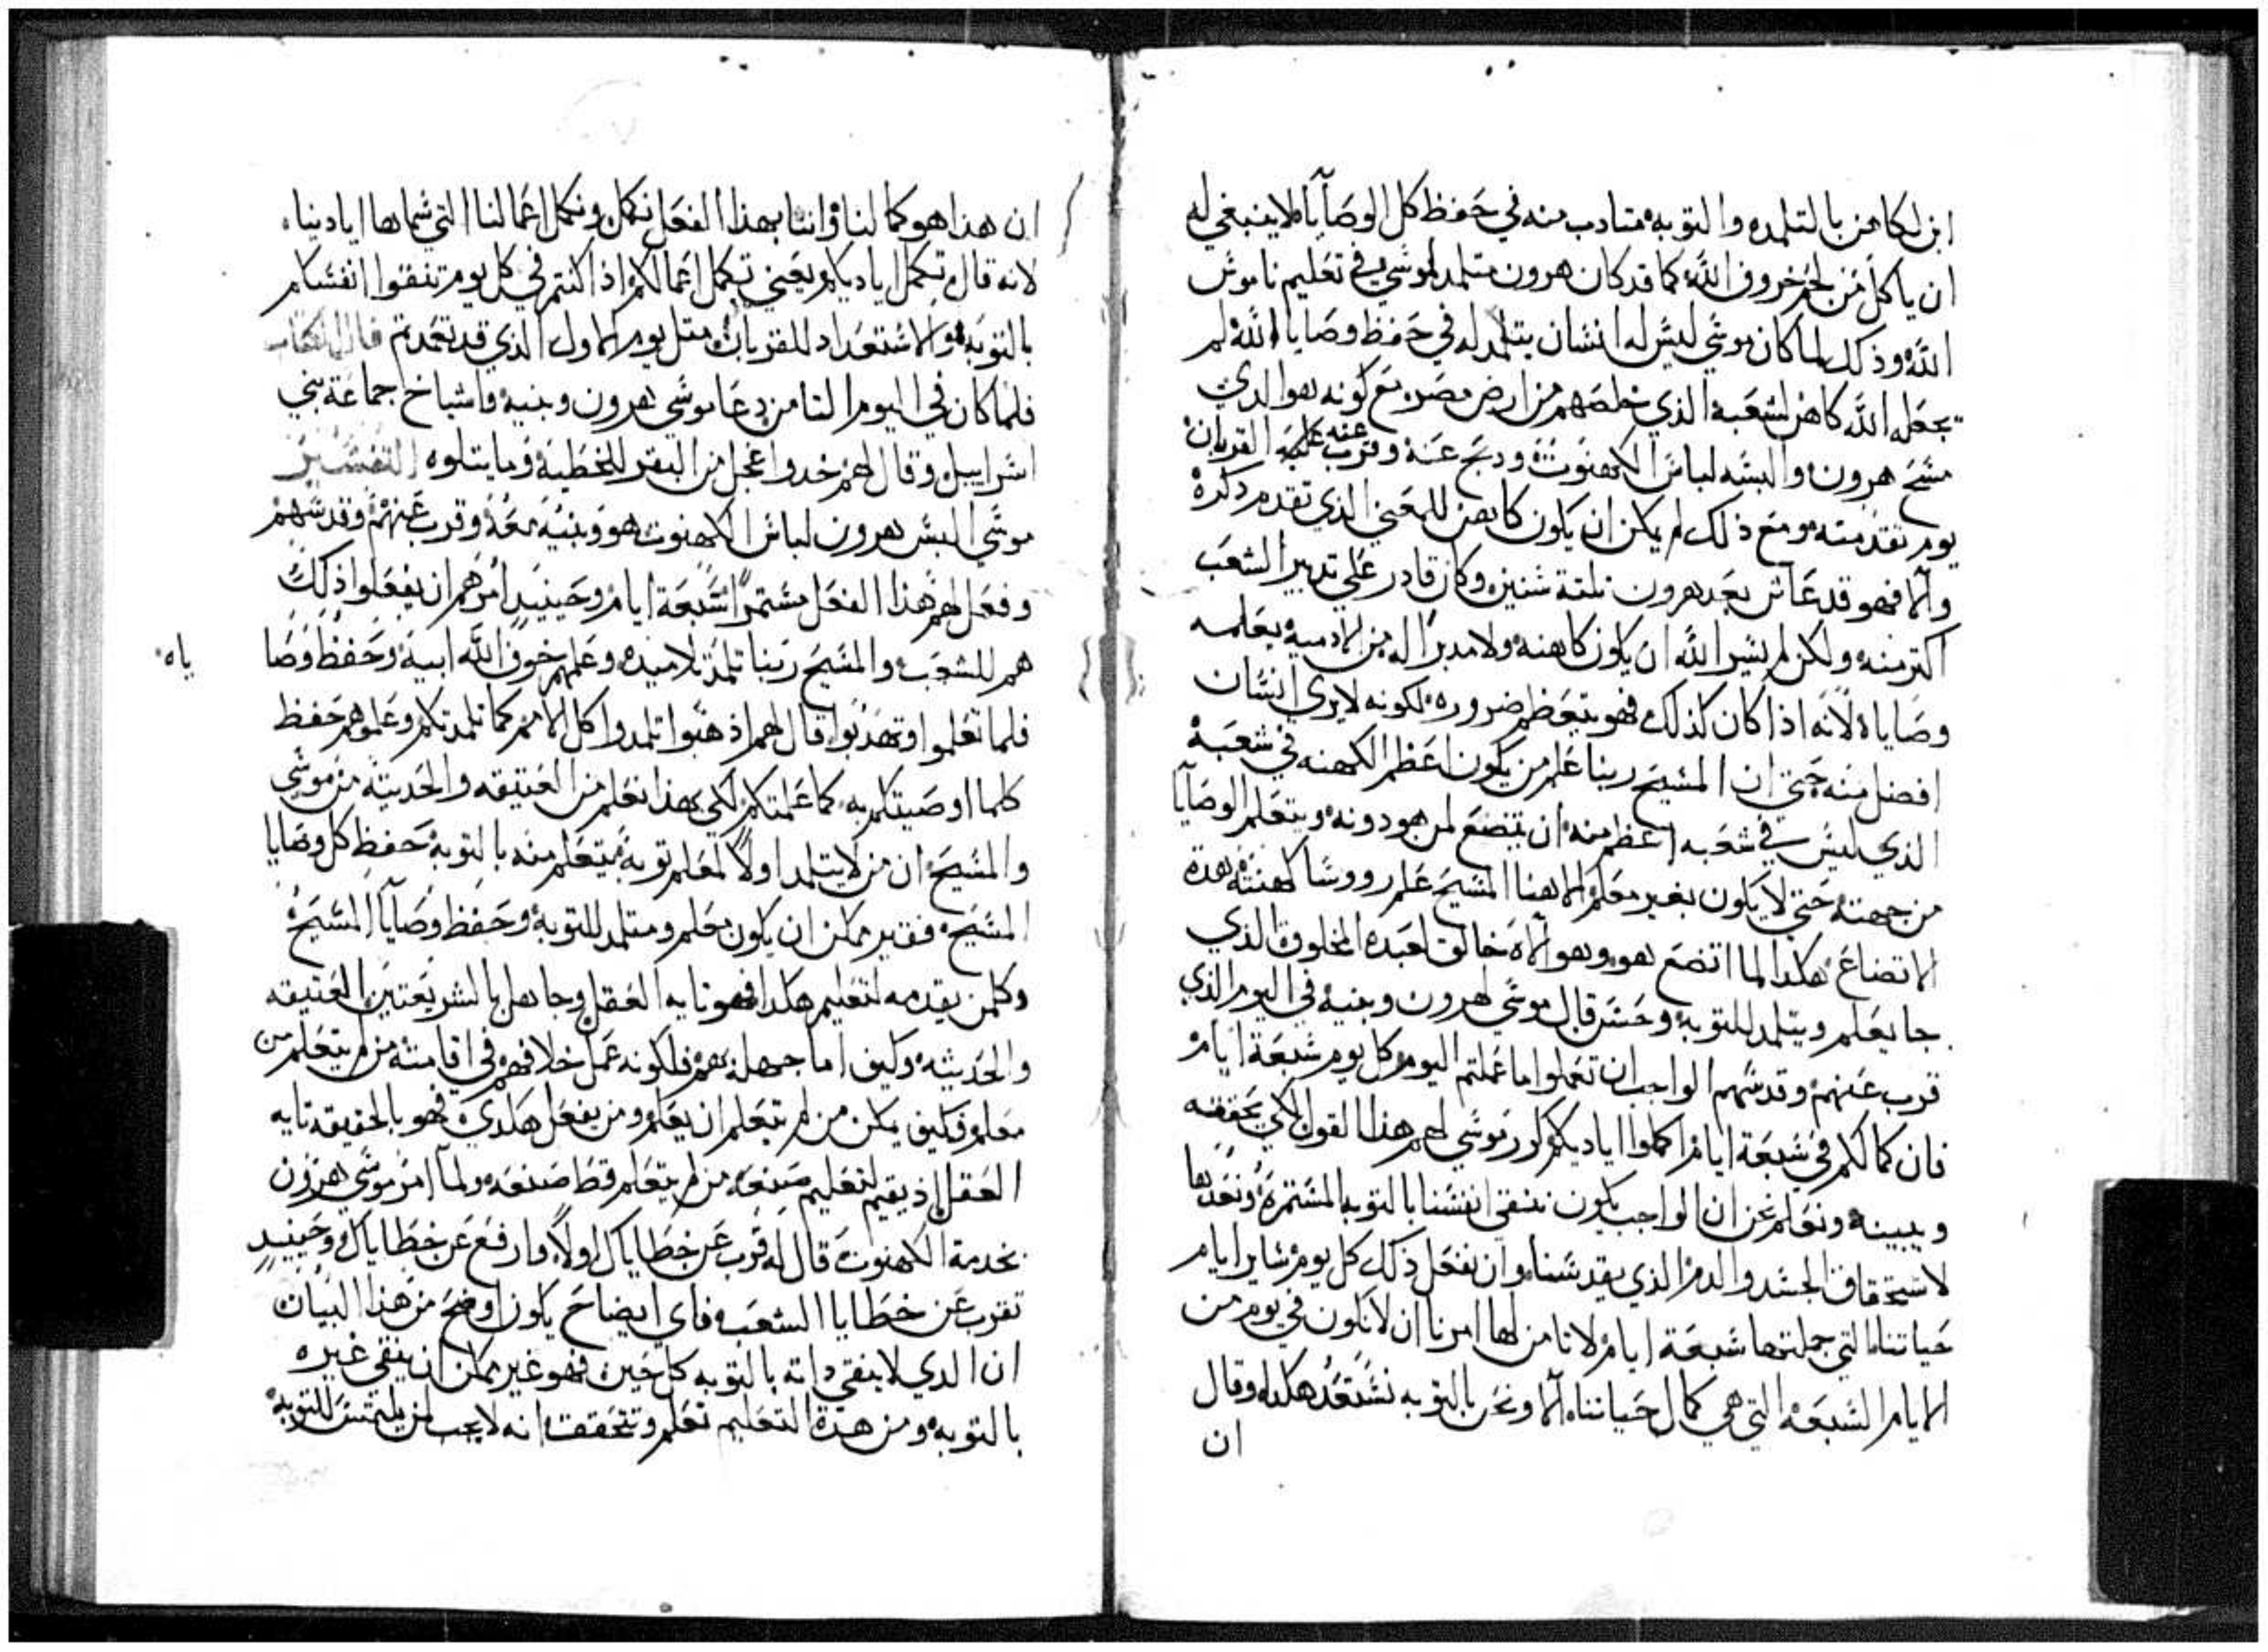 ابن لكاهن بالتلمده والتوبه متادب منه في حفظ كل الوصايا لا ينبغي له
ان ياكل من لحم خروف الله كما قد كان هرون متلمد لموسي في تعليم ناموس
الله وذلك لما كان موسي ليس له انسان يتلمد له في حفظ وصايا الله لم
يجعله الله كاهن لشعبه الذي خلصهم من ارض مصر مع كونه هو الدي
مسح هرون والبسه لباس الكهنوت ودبح عنه وقرب عنه القربان
يوم تقدمته ومع ذلك لم يكن ان يكون كاهن للمعني الذي تقدم دكره
والا فهو قد عاش بعد هرون تلتة سنين وكان قادر علي تدبير الشعب
اكتر منه ولكن لم يشير الله ان يكون كاهنه ولا مدبرا له من الادميه يعلمه
وصاياه لانه اذا كان كذلك فهو يتعظم ضروره لكونه لا يري انسان
افضل منه حتي ان المسيح ربنا علم من يكون اعظم الكهنه في شعبه
الذي ليس في شعبه اعظم منه ان يتضع لمن هو دونه ويتعلم الوصايا
من جهته حتي لا يكون بغير معلم الاهنا المسيح علم رووسا كهنته هدة
الاتضاع هكدا لما اتضع هو وهو الاه خالق لعبده المخلوق الذي
جا يعلم ويتلمد للتوبه وحسن قال موسي لهرون وبنيه في اليوم الذي
قرب عنهم وقدسهم الواجب ان تعملوا ما عملتم اليوم كل يوم سبعة ايام
فان كمالكم في سبعة ايام اكملوا اياديكم كرر موسي لهم هذا القول لكي يحققه
ويبينه ونعلم نحن ان الواجب يكون ننقي انفسنا بالتوبه المستمره ونعدها
لاستحقاق الجسد والدم الذي يقدسنا وان نفعل ذلك كل يوم ساير ايام
حياتنا التي جملتها سبعة ايام لاننا من لها امرنا ان لا نكون في يوم من
الايام السبعه التي هي كمال حياتنا الا ونحن بالتوبه نستعد هكدا وقال
ان
ان هذا هو كمالنا واننا بهذا الفعل نكمل ونكمل اعمالنا التي سماها ايادينا
لانه قال تكمل اياديكم يعني تكمل اعمالكم اذا كنتم في كل يوم تنقوا انفسكم
بالتوبه والاستعداد للقربان متل يوم الاول الذي قد تعمدتم قال الكتاب
فلما كان في اليوم التامن دعا موسي هرون وبنيه واشياخ جماعة بني
اسراييل وقال لهم خدوا عجل من البقر للخطيه وما يتلوه التفسير
موسي البس هرون لباس الكهنوت هو وبنيه معه وقرب عنهم وقدسهم
وفعل لهم هذا الفعل مستمرا سبعة ايام وحينيد امرهم ان يفعلوا ذلك
هم للشعب والمسيح ربنا تلمد تلاميده وعلمهم خوف الله ابيه وحفظ وصا
ياه
فلما تعلموا وتهدبوا قال لهم اذهبوا تلمدوا كل الامم كما تلمدتكم وعلموهم حفظ
كلما اوصيتكم به كما علمتكم لكي بهذا نعلم من العتيقه والحديثه من موسي
والمسيح ان من لا يتلمد اولا لمعلم توبه يتعلم منه بالتوبه حفظ كل وصايا
المسيح فغير ممكن ان يكون معلم ومتلمد للتوبه وحفظ وصايا المسيح
وكلمن يقدمه لتعليم هكدا فهو تايه العقل وجاهل بالشريعتين العتيقه
والحديثه وكيف اما جهله بهم فلكونه عمل خلافهم في اقامته من لم يتعلم من
معلم وكيف يمكن من لم يتعلم ان يعلم ومن يفعل هكدي فهو بالحقيقه تايه
العقل اذ يقيم لتعليم صنعه من لم يتعلم قط صنعه ولما امر موسي هرون
بخدمة الكهنوت قال له قرب عن خطاياك اولا وارفع عن خطاياك وحينيد
تقرب عن خطايا الشعب فاي ايضاح يكون اوضح من هذا البيان
ان الدي لا ينقي داته بالتوبه كل حين فهو غير ممكن ان ينقي غيره
بالتوبه ومن هدة التعليم نعلم ونتحقق انه لا يجب لمن يلتمس للتوبه